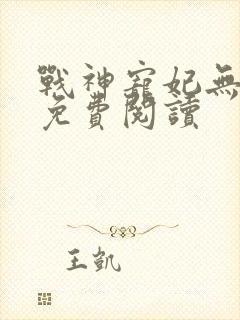 戰神寵妃無
免費閱讀
王凱